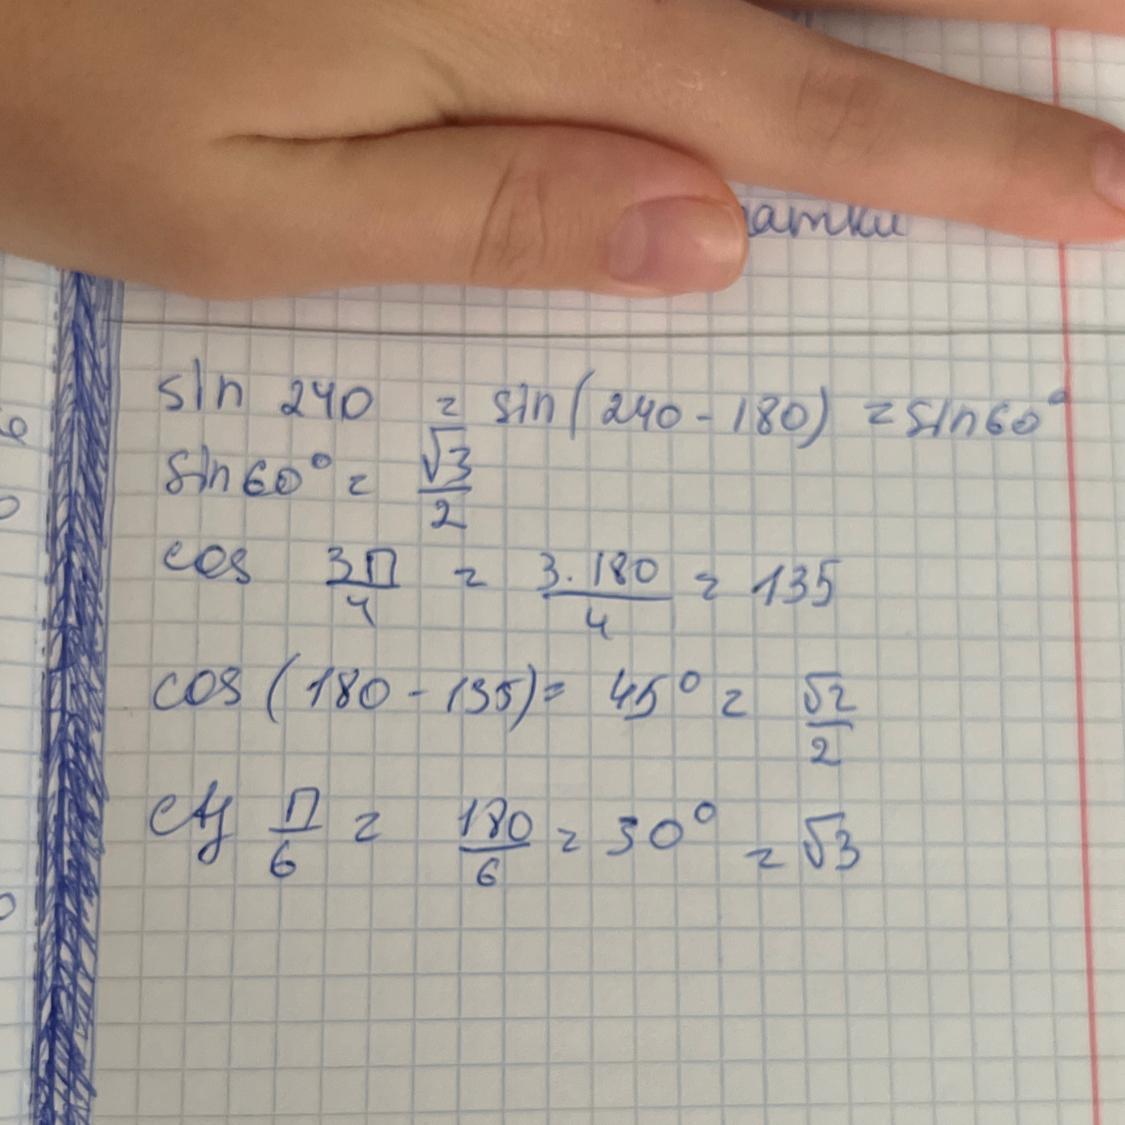 sin 240 = sin(240-180) = sin60°
sin60° = √3/2
cos 3π/4 = 3·180/4 = 135
cos (180-135)= 45° = √2/2
ctg π/6 = 180/6 = 30° = √3